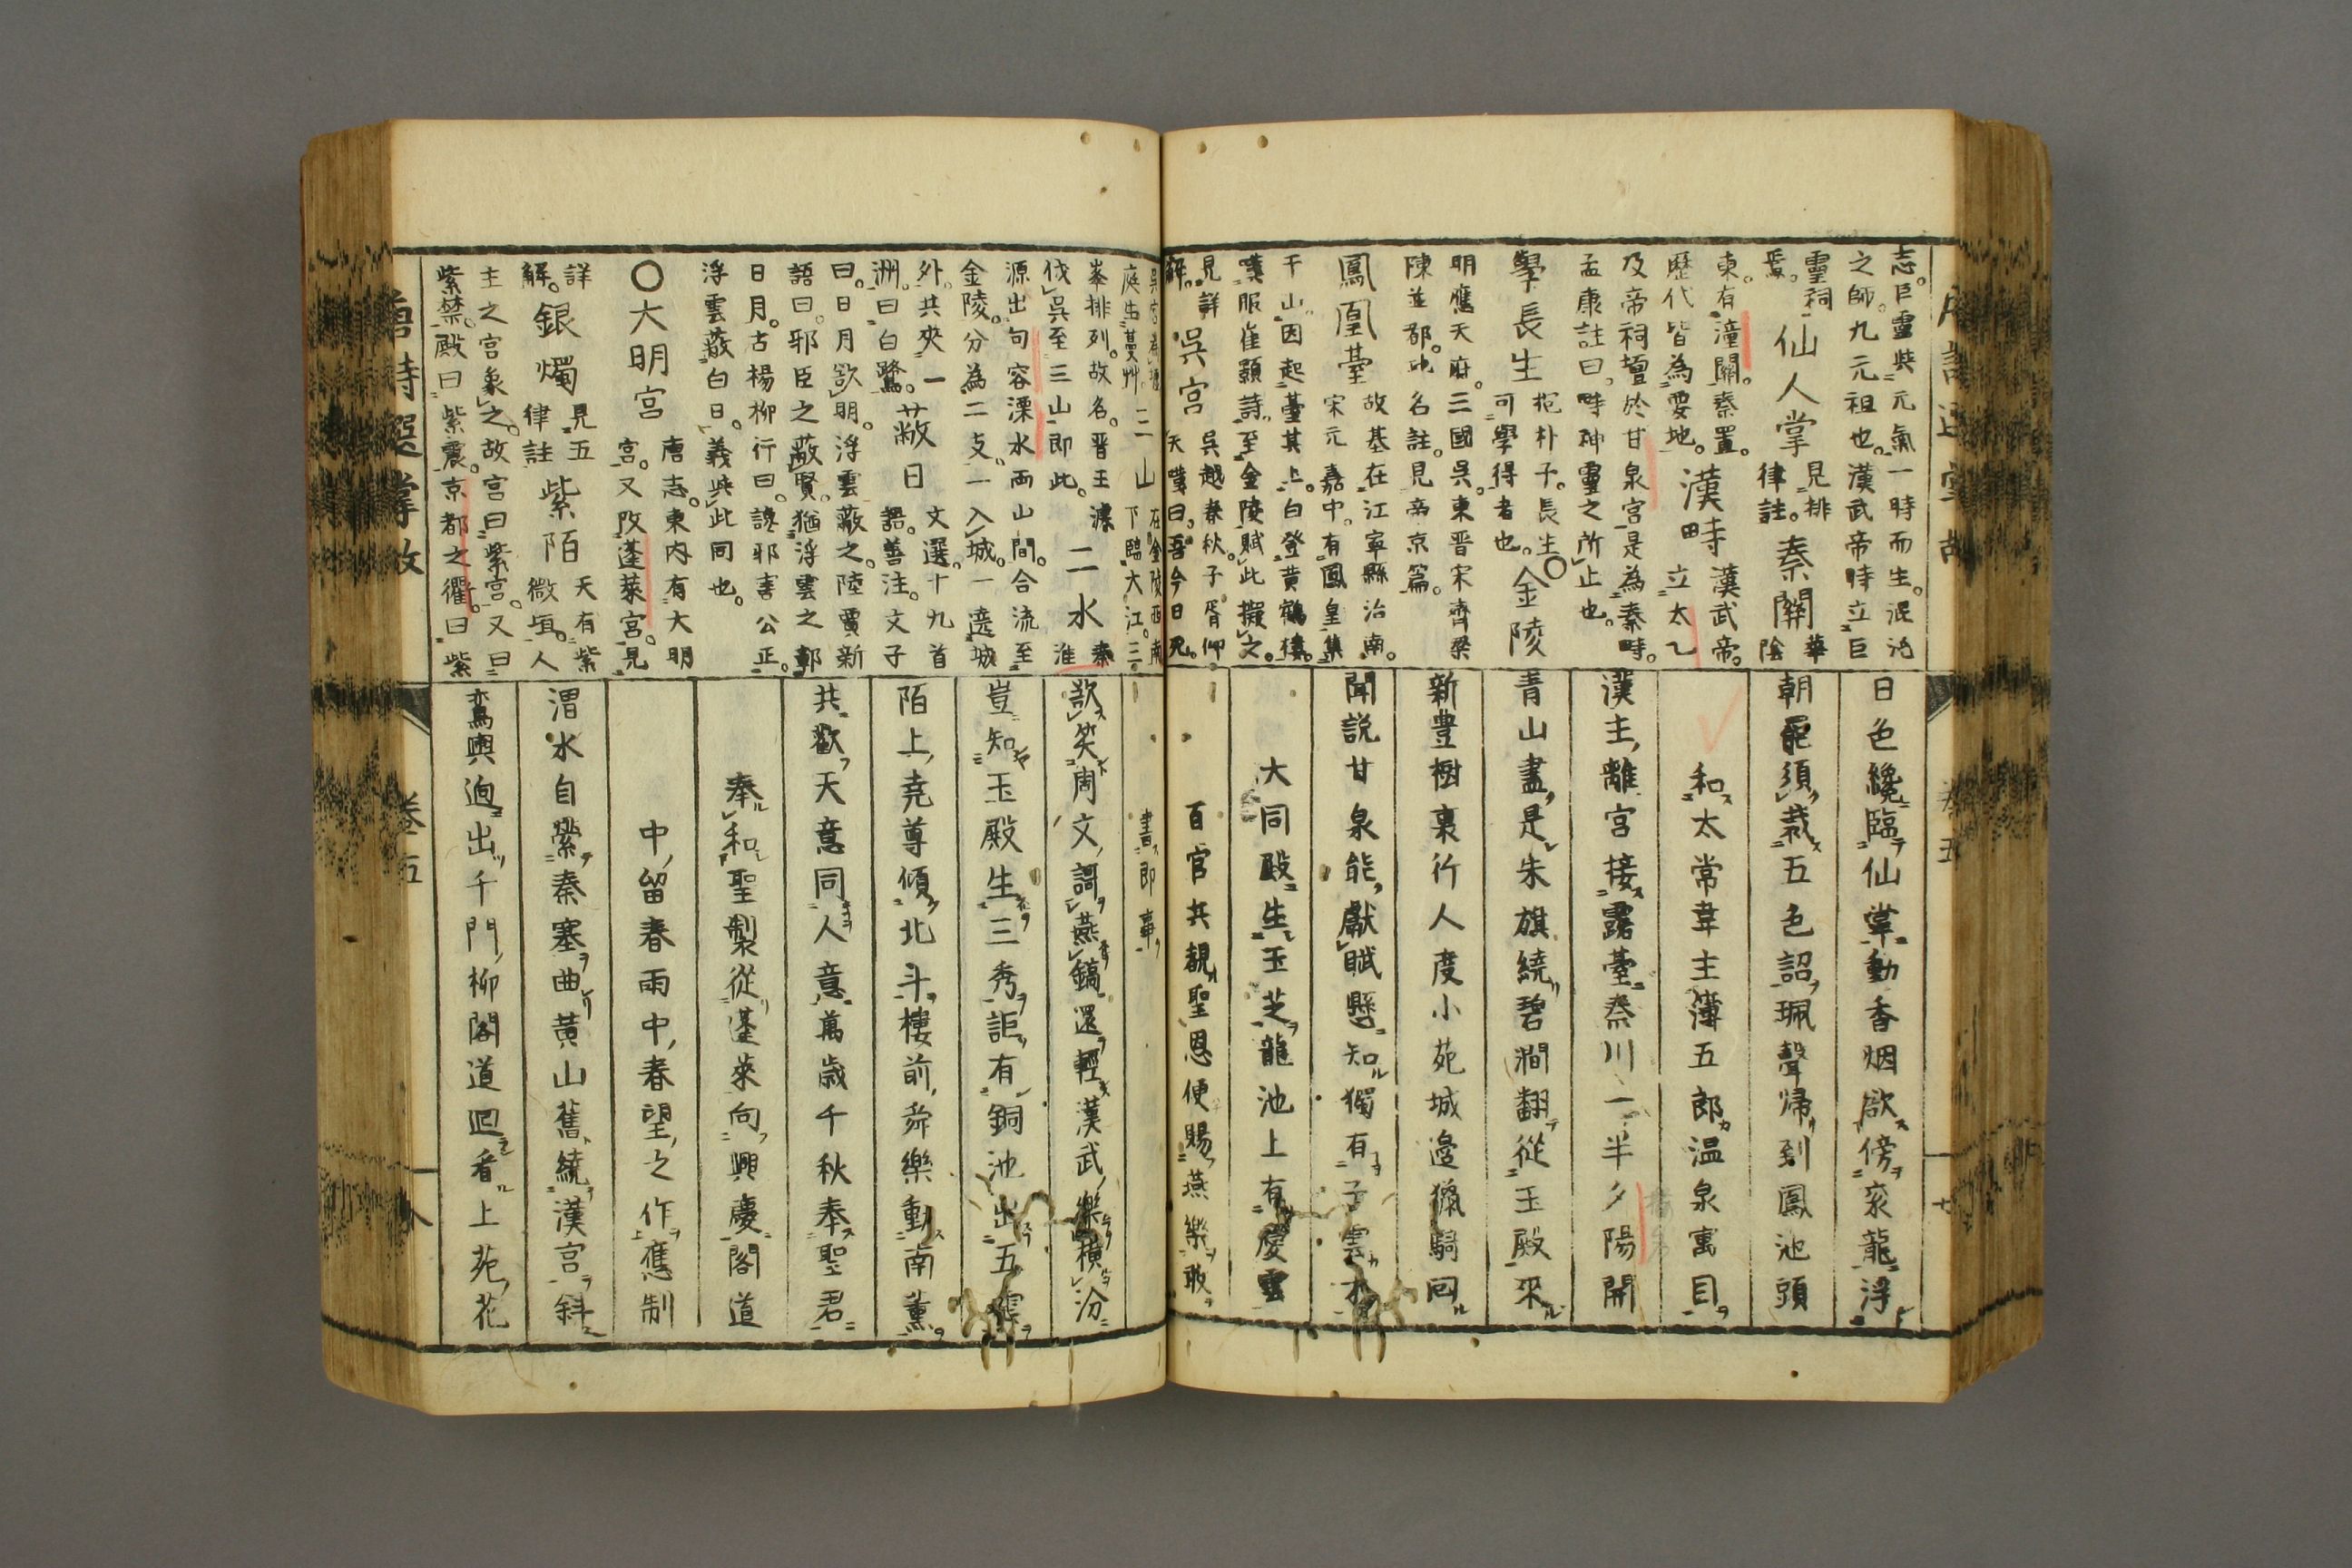 志。巨靈與元氣一時而生。混沌
之師。九元祖也。漢武帝時立巨
靈祠焉。
仙人掌
見排律註。
秦關
華陰
東。有潼關。秦置。
歷代皆為要地。
漢畤
漢武帝。立太乙
及帝祠壇於甘泉宮。是為秦畤。
孟康註曰。畤神靈之所止也。
學長生
抱朴子。長生可學得者也。
○金陵
明應天府。三國吳。東晋宋齊梁
陳並都。地名註。見帝京篇。
鳳凰臺
故基在江寧縣治南。
宋元嘉中。有鳳皇集
于山。因起臺其上。白登黄鶴樓。
嘆服崔顥詩。至金陵賦此擬之。
見詳解。
吳宮
吳越春秋。子胥仰
天嘆曰。吾今日死。
日色纔臨仙掌動香烟欲傍衮龍浮
朝罷須裁五色詔珮聲歸到鳳池頭
和太常韋主簿五郎温泉寓目
漢主離宮接露臺秦川一半夕陽開
青山盡是朱旗繞碧澗翻從玉殿來
新豊樹裏行人度小苑城邉獵騎回
聞説甘泉能獻賦懸知獨有子雲才
大同殿生玉芝龍池上有慶雲
百官共覩聖恩便賜燕樂敢
卷五
七
三山
在金陵西南
下臨大江。三
峯排列。故名。晋王濬
伐吳至三山即此。
二水
秦淮
源出句容溧水両山間。合流至
金陵。分為二支。一入城。一遶城
外。共夾一洲。曰白鷺。
蔽日
文選。十九首
語。善注。文子
曰。日月欲明。浮雲蔽之。陸賈新
語曰。邪臣之蔽賢。猶浮雲之鄣
日月。古楊柳行曰。讒邪害公正。
浮雲蔽白日。義與此同也。
○大明宮
唐志。東内有大明
宮。又改蓬萊宮。見
詳解。
銀燭
見五律註
紫陌
天有紫微垣。人
主之宮象之。故宮曰紫宮。又曰
紫禁。殿曰紫震。京都之衢。曰紫
書即事
欲笑周文謌燕鎬還輕漢武樂横汾
豈知玉殿生三秀詎有銅池出五雲
陌上尭尊傾北斗樓前舜樂動南薫
共歡天意同人意萬歳千秋奉聖君
奉和聖製從蓬萊向興慶閣道
中留春雨中春望之作應制
渭水自縈秦塞曲黄山舊繞漢宮斜
鸞輿逈出千門柳閣道廻看上苑花
唐詩選掌故
卷五
八